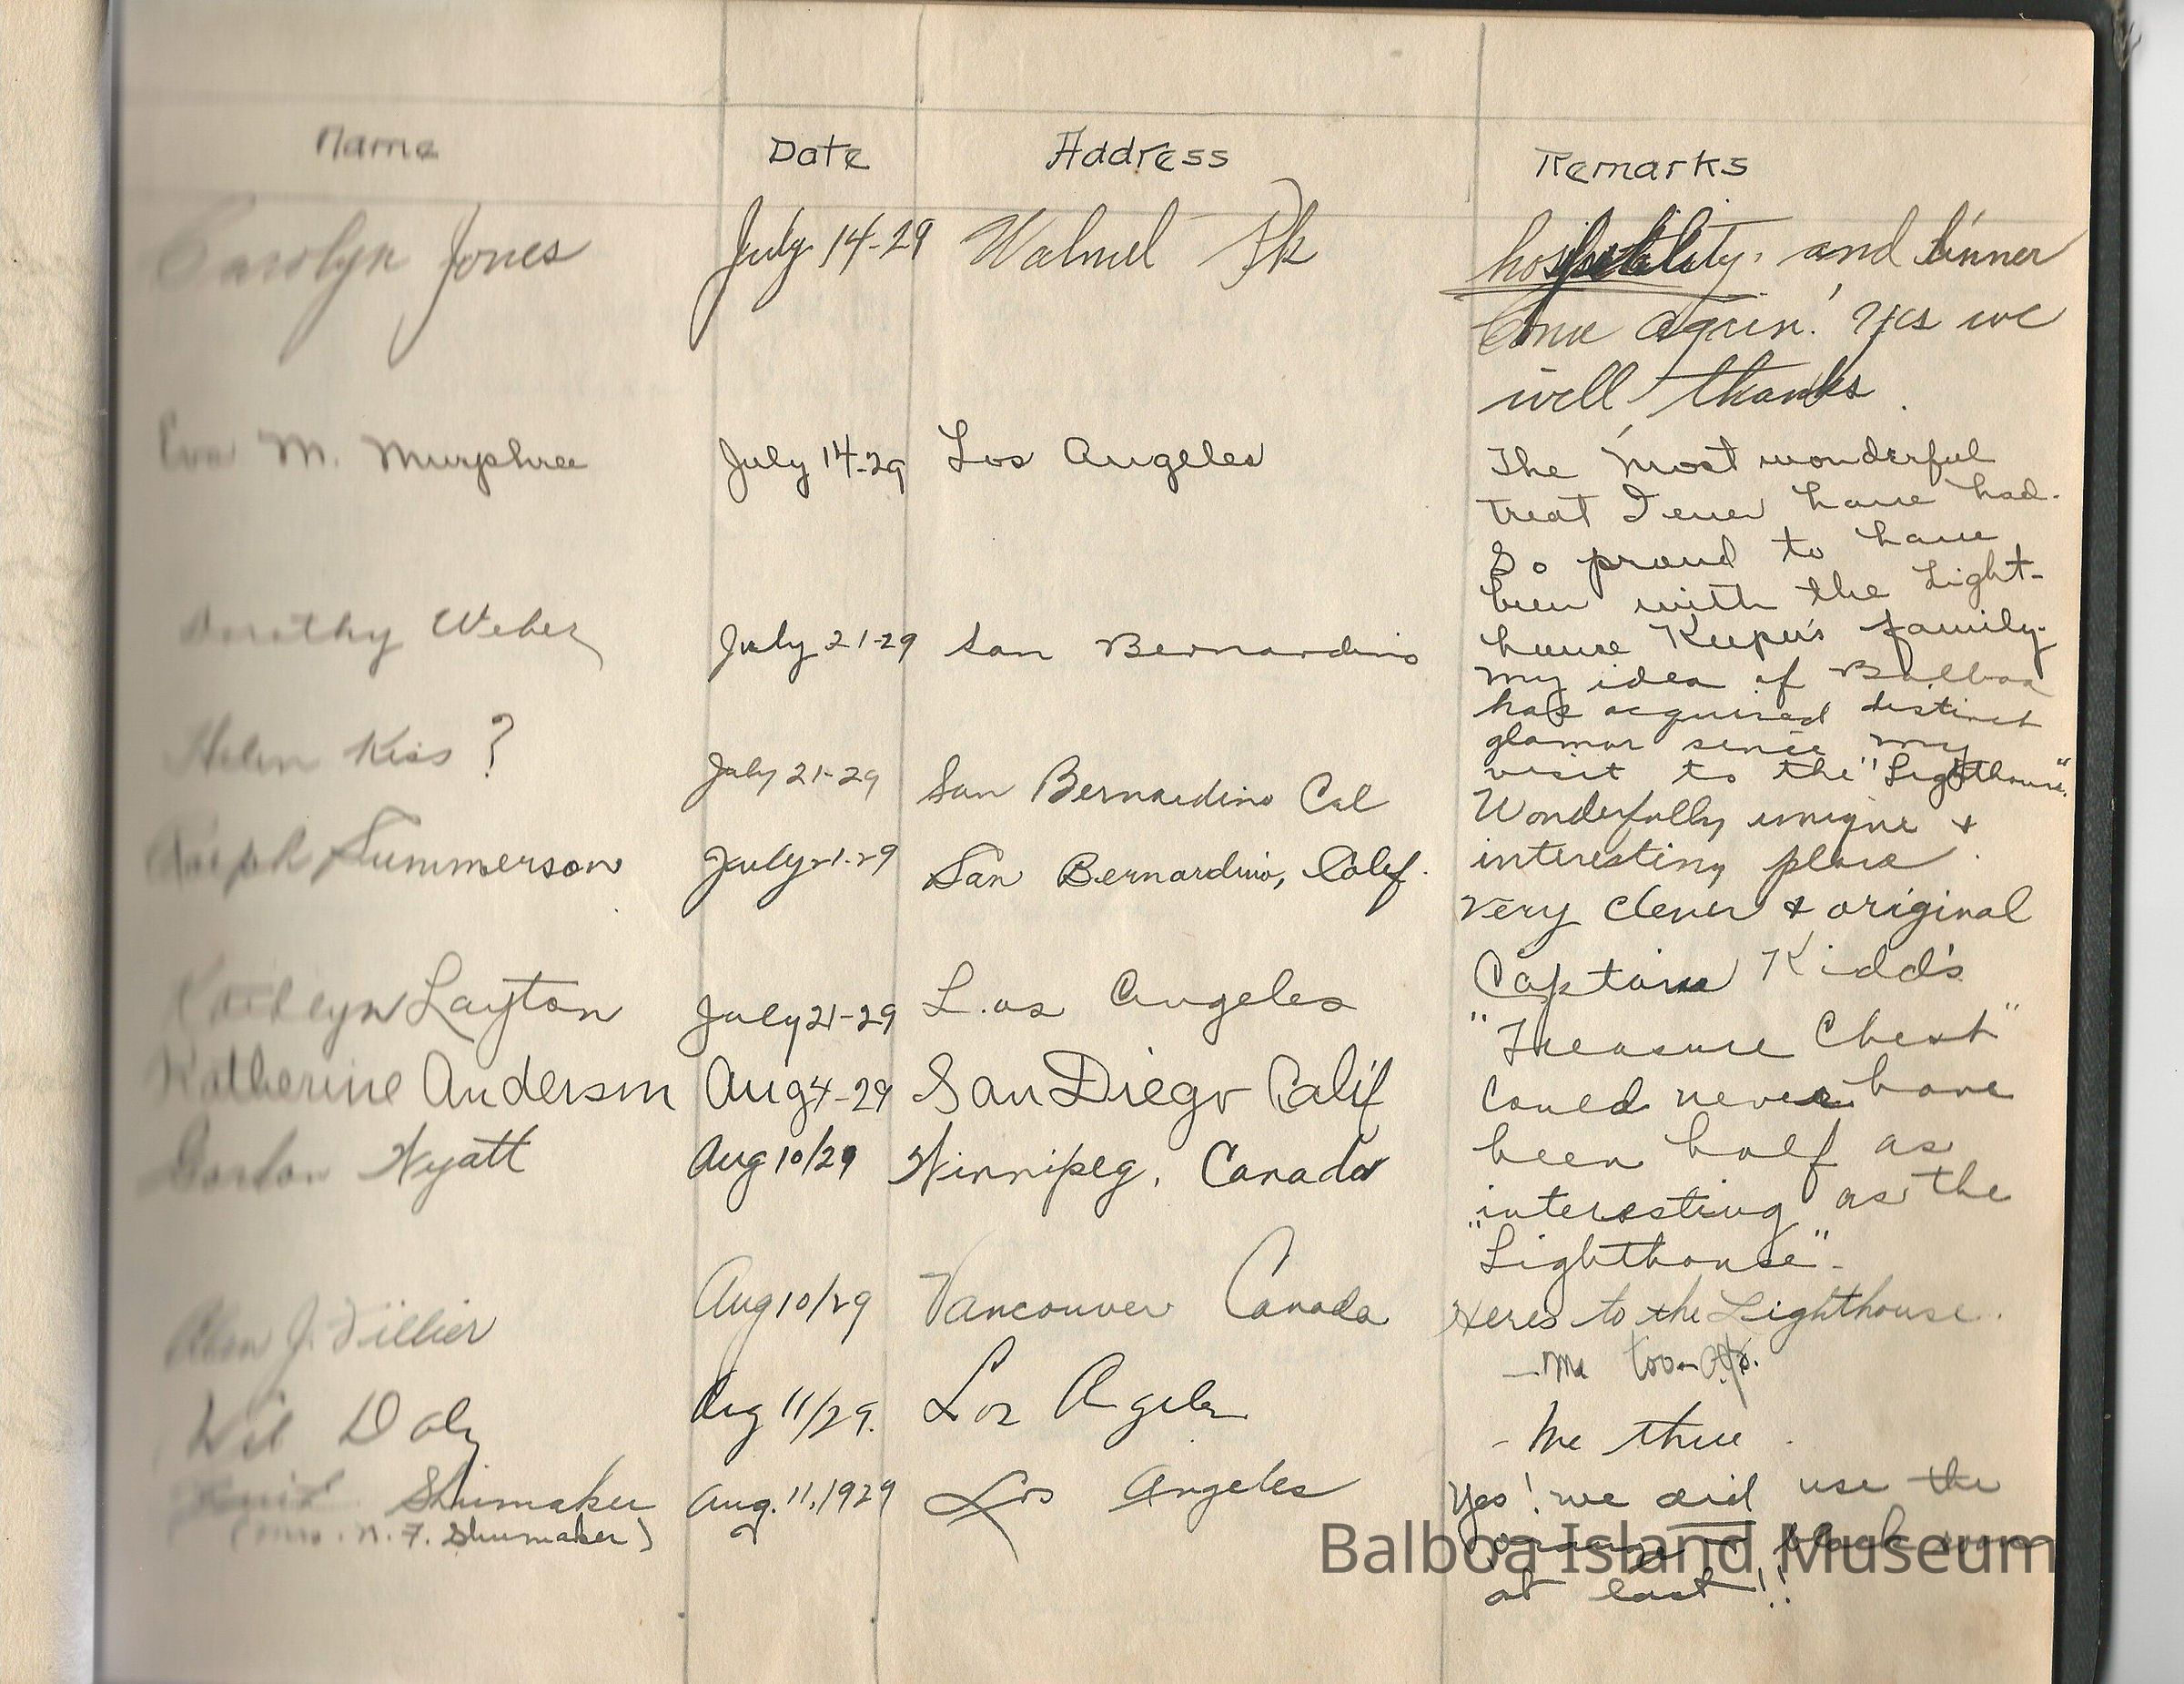 Name Date Address Remarks
Carolyn Jones July 14-29 Walnut Pk hospitality. and dinner
Come again! Yes we
will thanks.
Eva M. Murphree July 14-29 Los Angeles The most wonderful
treat I ever have had.
So proud to have
been with the Light-
house Keeper's family.
Dorothy Weber July 21-29 San Bernardino My idea of Balboa
has acquired distinct
glamor since my
visit to the "Lighthouse".
Helen Kiss ? July 21-29 San Bernardino Cal Wonderfully unique &
interesting place.
Ralph Summerson July 21-29 San Bernardino, Calif. Very clever & original
Kathlyn Layton July 21-29 Los Angeles Captain Kidd's
"Treasure Chest"
Katherine Anderson Aug 4-29 San Diego Calif could never have
Gordon Wyatt Aug 10/29 Winnipeg, Canada been half as
interesting as the
"Lighthouse".
J. Villier Aug 10/29 Vancouver Canada Heres to the Lighthouse.
- Me too
Daly Aug 11/29. Los Angeles - Me three.
Shumaker Aug. 11, 1929 Los Angeles Yes! we did use the
(Mrs. N. F. Shumaker) orange & black room
at last!!
Balboa Island Museum